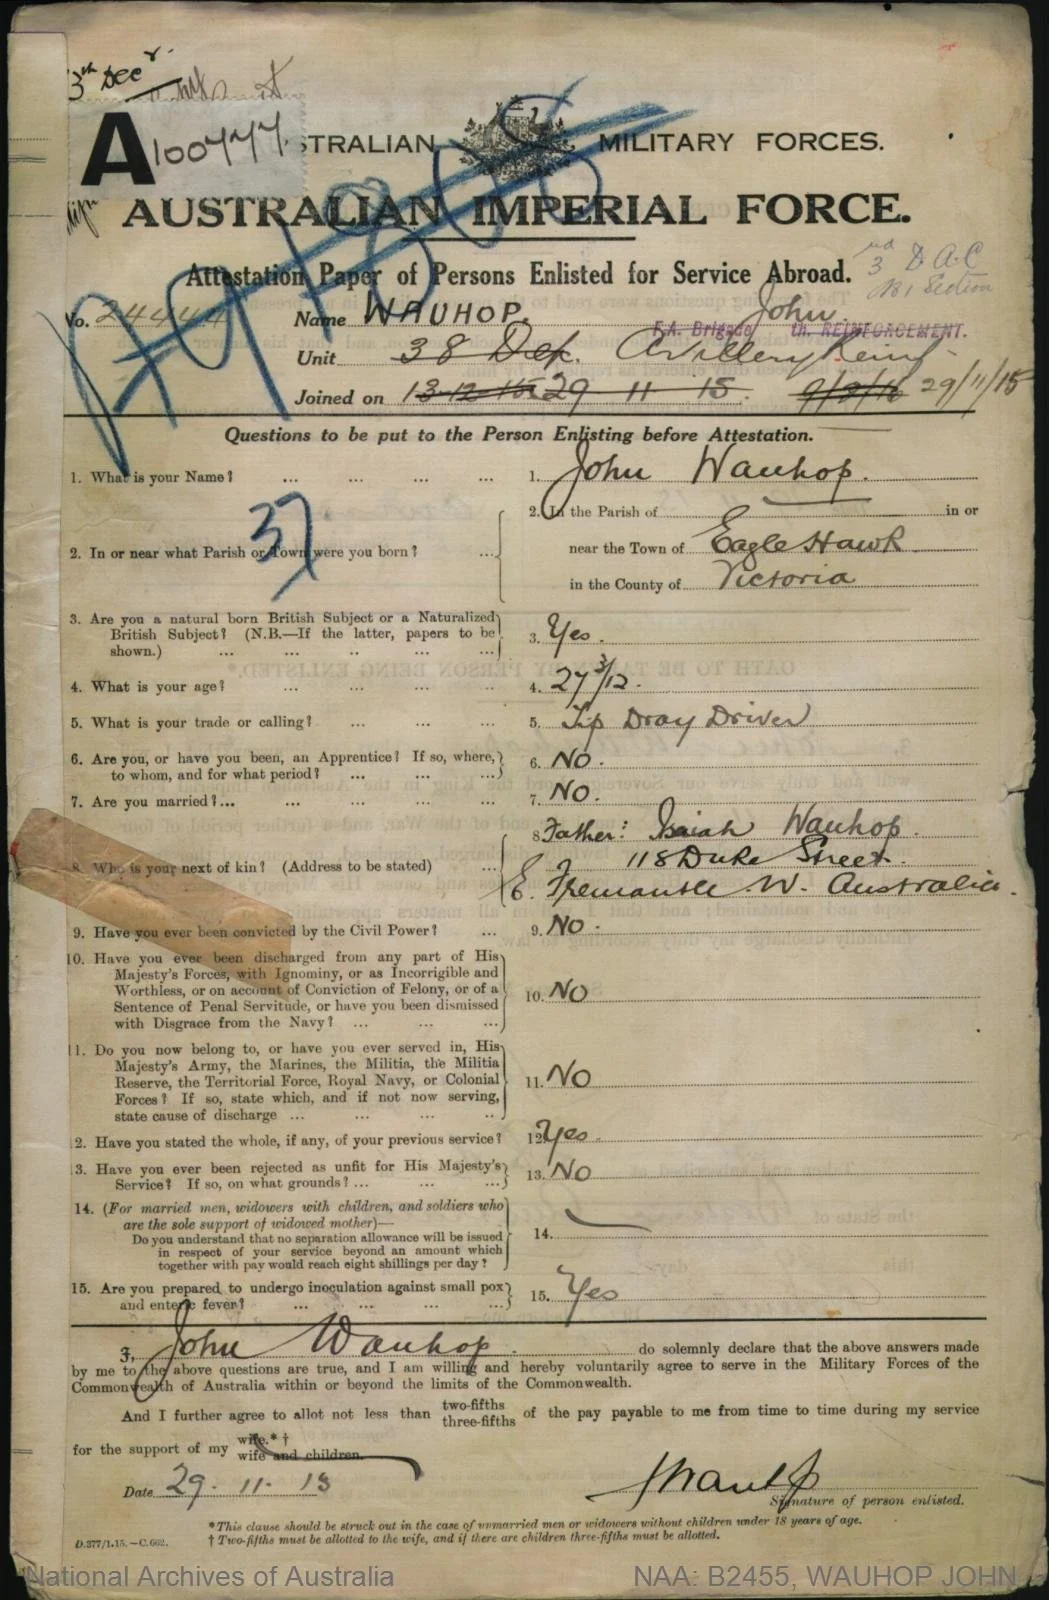 3th Decr
A 100477
STRALIAN MILITARY FORCES.
AUSTRALIAN IMPERIAL FORCE.
Attestation Paper of Persons Enlisted for Service Abroad.
3rd D.A.C
No. 24444 Name WAUHOP. John.
F.A. Brigade th. REINFORCEMENT.
Unit 38 Dep. Artillery Reinf
Joined on 13-12-15 29 11 15. 9/2/16 29/11/15
Questions to be put to the Person Enlisting before Attestation.
1. What is your Name? ... ... ... ... 1. John Wauhop.
37
2. In the Parish of in or
2. In or near what Parish or Town were you born? ... near the Town of Eagle Hawk
in the County of Victoria
3. Are you a natural born British Subject or a Naturalized
British Subject? (N.B.—If the latter, papers to be 3. Yes.
shown.) ... ... .. ... ...
4. What is your age? ... ... ... ... 4. 27 3/12.
5. What is your trade or calling? ... ... ... 5. Tip Dray Driver
6. Are you, or have you been, an Apprentice? If so, where, 6. No.
to whom, and for what period? ... ... ...
7. Are you married?... ... ... ... ... 7. No.
8. Father: Isaiah Wauhop.
8. Who is your next of kin? (Address to be stated) ... 118 Duke Street.
E. Fremantle W. Australia.
9. Have you ever been convicted by the Civil Power? ... 9. No.
10. Have you ever been discharged from any part of His
Majesty's Forces, with Ignominy, or as Incorrigible and
Worthless, or on account of Conviction of Felony, or of a 10. No
Sentence of Penal Servitude, or have you been dismissed
with Disgrace from the Navy? ... ... ...
11. Do you now belong to, or have you ever served in, His
Majesty's Army, the Marines, the Militia, the Militia
Reserve, the Territorial Force, Royal Navy, or Colonial 11. No
Forces? If so, state which, and if not now serving,
state cause of discharge ... ... ... ..
2. Have you stated the whole, if any, of your previous service? 12. Yes.
3. Have you ever been rejected as unfit for His Majesty's 13. No
Service? If so, on what grounds? ... ... ...
14. (For married men, widowers with children, and soldiers who
are the sole support of widowed mother)—
Do you understand that no separation allowance will be issued 14.
in respect of your service beyond an amount which
together with pay would reach eight shillings per day?
15. Are you prepared to undergo inoculation against small pox 15. Yes
and enteric fever? ... ... ... ...
I, John Wauhop. do solemnly declare that the above answers made
by me to the above questions are true, and I am willing and hereby voluntarily agree to serve in the Military Forces of the
Commonwealth of Australia within or beyond the limits of the Commonwealth.
And I further agree to allot not less than two-fifths three-fifths of the pay payable to me from time to time during my service
for the support of my wife.*† wife and children.
Date 29. 11. 15 J Wauhop
Signature of person enlisted.
* This clause should be struck out in the case of unmarried men or widowers without children under 18 years of age.
† Two-fifths must be allotted to the wife, and if there are children three-fifths must be allotted.
D.377/1.15.—C.662.
National Archives of Australia NAA: B2455, WAUHOP JOHN